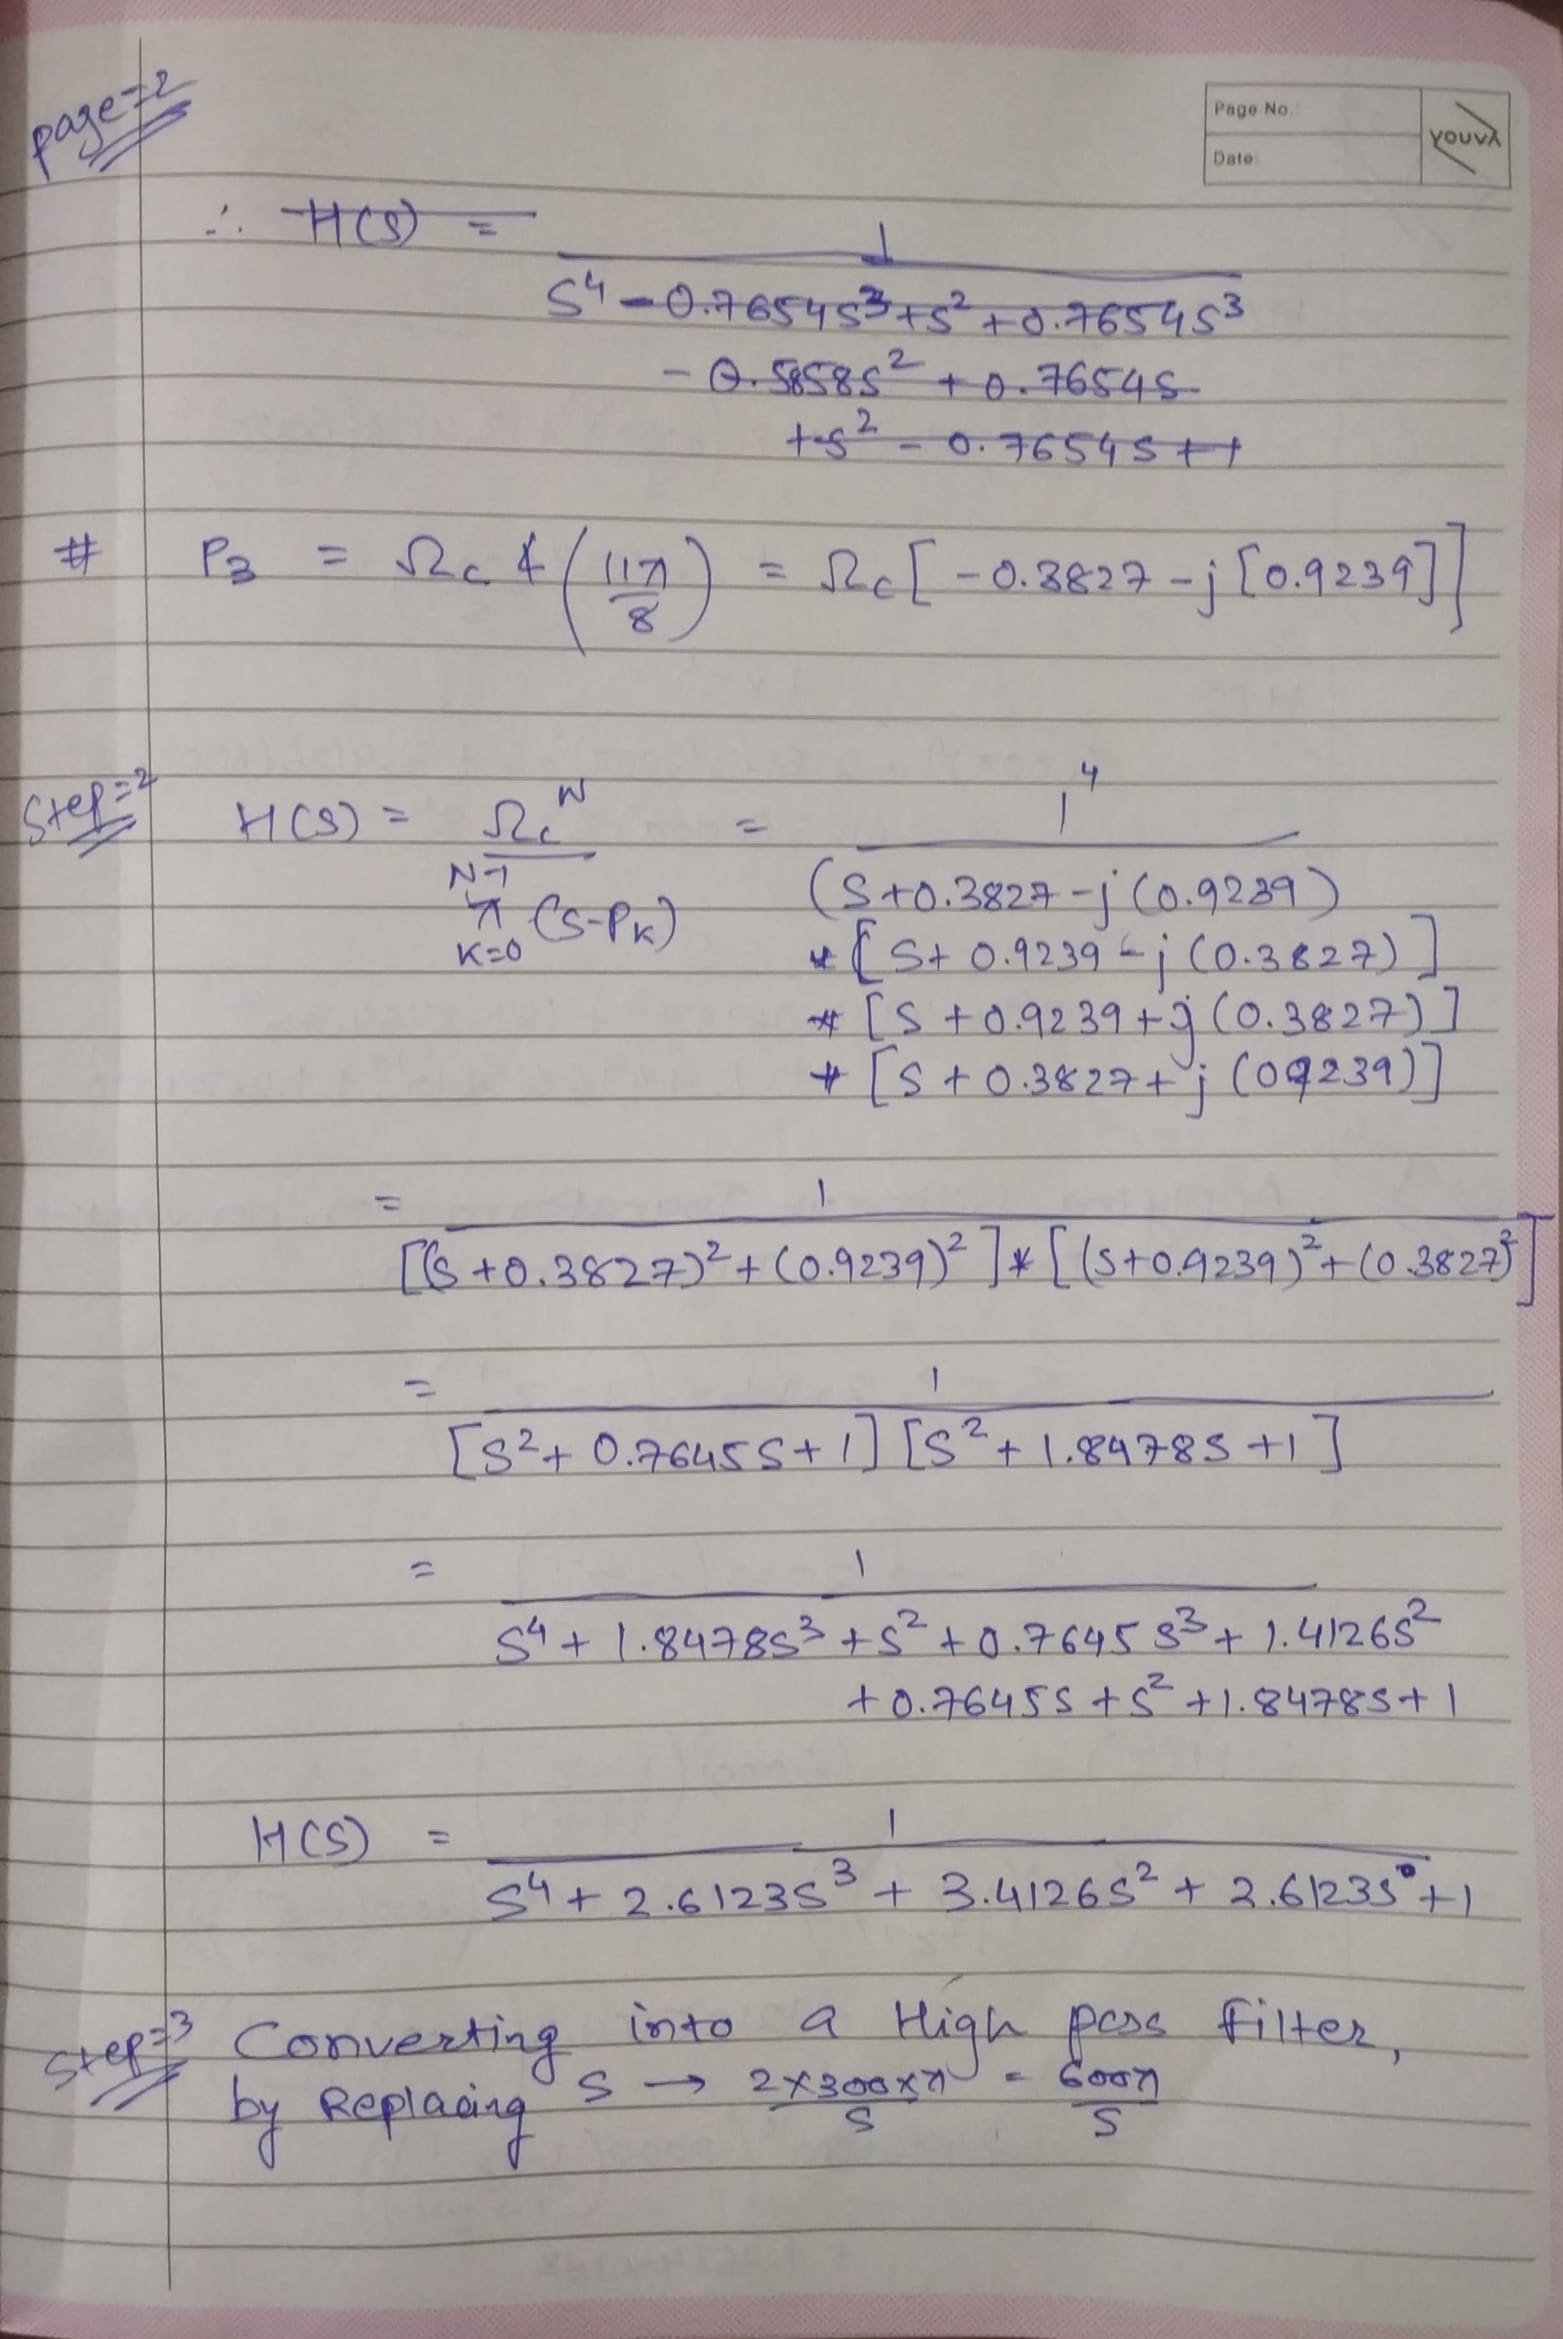 page=2
Page No.:
Date:
YOUVA
∴ H(S) = 1
S⁴ - 0.7654S³ + S² + 0.7654S³
- 0.5858S² + 0.7654S
+ S² - 0.7654S + 1
# P₃ = Ωc ∡ (11π/8) = Ωc [-0.3827 - j[0.9239]]
Step=2 H(S) = Ωc^N / π (S-Pk) = 1⁴
N-1
K=0
(S+0.3827 - j(0.9239)
* [S + 0.9239 - j(0.3827)]
* [S + 0.9239 + j(0.3827)]
* [S + 0.3827 + j(09239)]
= 1
[(S+0.3827)² + (0.9239)²] * [(S+0.9239)² + (0.3827)²]
= 1
[S² + 0.7645S + 1] [S² + 1.8478S + 1]
= 1
S⁴ + 1.8478S³ + S² + 0.7645S³ + 1.4126S²
+ 0.7645S + S² + 1.8478S + 1
H(S) = 1
S⁴ + 2.6123S³ + 3.4126S² + 2.6123S + 1
Step=3 Converting into a High pass filter,
by Replacing S → 2×300×π/S = 600π/S